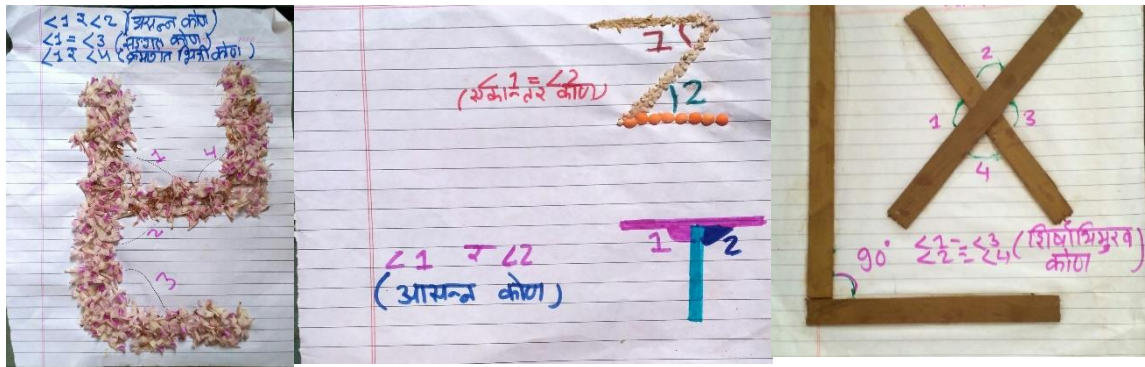 <1 र <2 (आसन्न कोण)
<1 = <3 (सङ्गत कोण)
<1 र <4 (क्रमागत भित्री कोण)
1
4
2
3
1
<1 = <2
(एकान्तर कोण)
2
<1 र <2
(आसन्न कोण)
1 2
2
1 3
4
90°
<1 = <3 (शिर्षाभिमुख
<2 = <4 कोण)